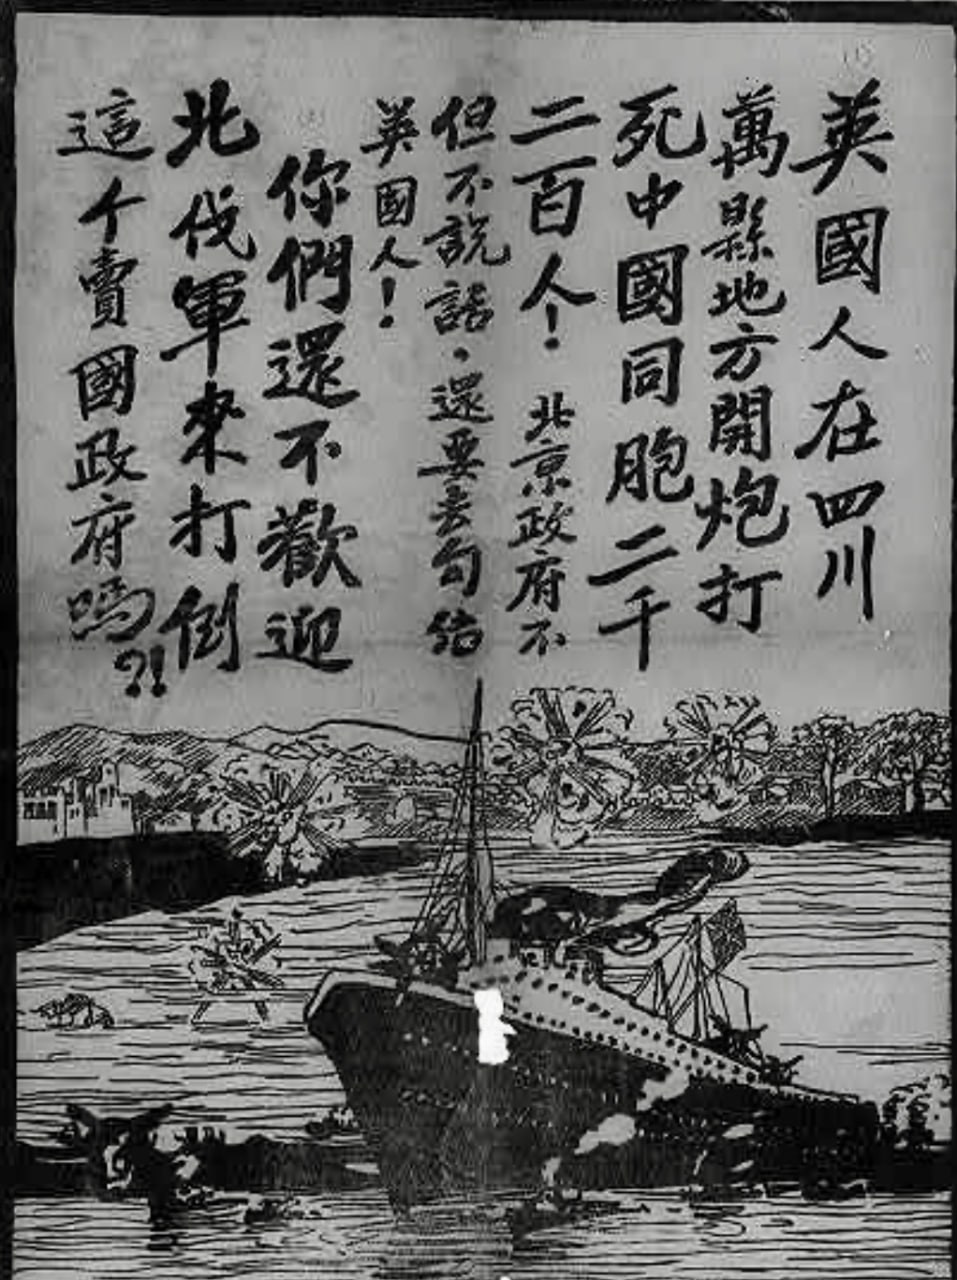 英國人在四川
萬縣地方開炮打
死中國同胞二千
二百人！北京政府不
但不說話，還要去勾结
英國人！
你們還不歡迎
北伐軍來打倒
這个賣國政府嗎?!